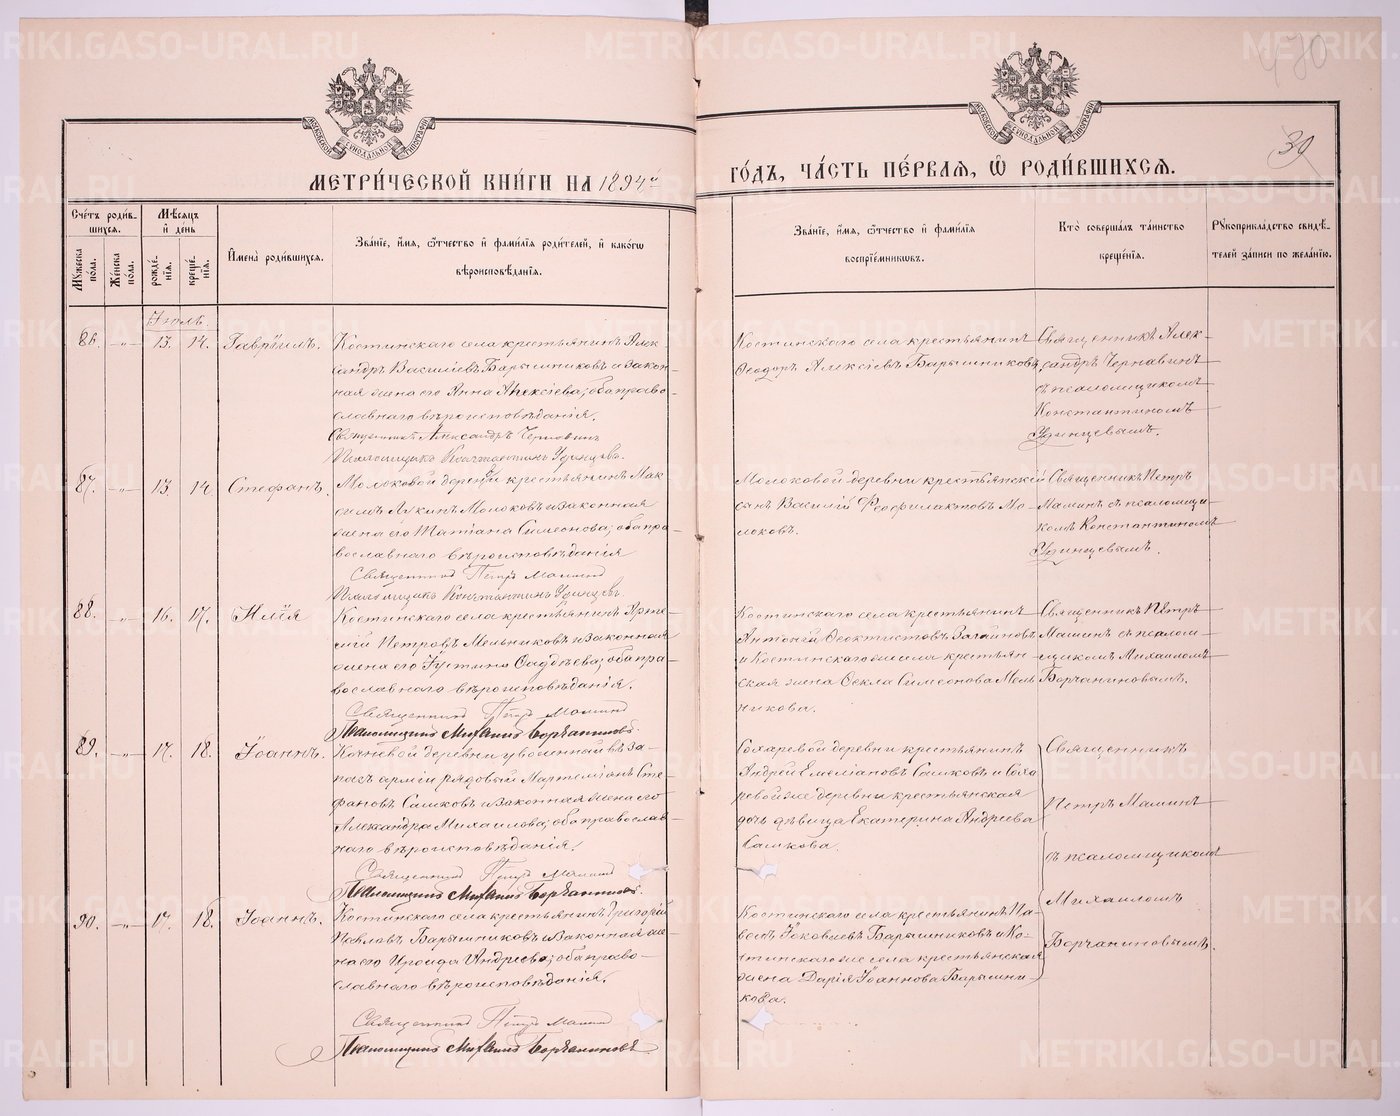 470
30
МЕТРИ́ЧЕСКОЙ КНИ́ГИ НА 1894й
ГО́ДЪ, ЧА́СТЬ ПЕ́РВАЯ, Ѿ РОДИ́ВШИХСЯ.
Сче́тъ роди́в-
шихся.
Му́жеска по́ла.
Же́нска по́ла.
Мѣ́сяцъ
и҆ де́нь
рожде́-
нїя.
креще́-
нїя.
И҆мена̀ роди́вшихся.
Зва́нїе, и҆́мя, ѻ҆́тчество и҆ фами́лїя роди́телей, и҆ како́гѡ
вѣроисповѣ́данїя.
Зва́нїе, и҆́мя, ѻ҆́тчество и҆ фами́лїя
воспрїе́мниковъ.
Кто̀ соверша́лъ та́инство
креще́нїя.
Рꙋкоприкла́дство свидѣ́-
телей за́писи по жела́нїю.
Іюль.
86. -„- 13. 14. Гавріилъ.
Костинскаго села крестьянинъ Алек
сандръ Василіевъ Барышниковъ и закон-
ная жена его Анна Алексіева; оба право-
славнаго вѣроисповѣданія.
Священникъ Александръ Чернавинъ
Псаломщикъ Константинъ Удинцевъ.
Костинскаго села крестьянинъ
Ѳеодоръ Алексіевъ Барышниковъ
Священникъ Алек-
сандръ Чернавинъ
съ псаломщикомъ
Константиномъ
Удинцевымъ.
87. -„- 13. 14. Стефанъ.
Молоковой деревни крестьянинъ Мак
симъ Лукинъ Молоковъ и законная
жена его Татіана Симеонова; оба пра-
вославнаго вѣроисповѣданія
Священникъ Петръ Маминъ
Псаломщикъ Константинъ Удинцевъ.
Молоковой деревни крестьянскій
сынъ Василій Феофилактовъ Мо-
локовъ.
Священникъ Петръ
Маминъ съ псаломщи-
комъ Константиномъ
Удинцевымъ.
88. -„- 16. 17. Илія
Костинскаго села крестьянинъ Арте-
мій Петровъ Мельниковъ и законная
жена его Іустина Фаддѣева; оба пра-
вославнаго вѣроисповѣданія.
Священникъ Петръ Маминъ
Псаломщикъ Михаилъ Борчаниновъ.
Костинскаго села крестьянинъ
Антоній Ѳеоктистовъ Загайновъ
и Костинскаго же села крестьян-
ская жена Ѳекла Симеонова Мель
никова.
Священникъ Петръ
Маминъ съ псалом-
щикомъ Михаиломъ
Борчаниновымъ.
89. -„- 17. 18. Іоаннъ.
Кочневой деревни уволенный въ за-
пасъ арміи рядовый Мартеміанъ Сте-
фановъ Самковъ и законная жена его
Александра Михаилова; оба православ-
наго вѣроисповѣданія.
Священникъ Петръ Маминъ
Псаломщикъ Михаилъ Борчаниновъ.
Сохаревой деревни крестьянинъ
Андрей Емеліановъ Самковъ и Соха
ревой же деревни крестьянская
дочь дѣвица Екатерина Андреева
Самкова.
Священникъ
Петръ Маминъ
съ псаломщикомъ
Михаиломъ
Борчаниновымъ.
90. -„- 17. 18. Іоаннъ.
Костинскаго села крестьянинъ Григорій
Павловъ Барышниковъ и законная же-
на его Ироида Андреева; оба право-
славнаго вѣроисповѣданія.
Священникъ Петръ Маминъ
Псаломщикъ Михаилъ Борчаниновъ.
Костинскаго села крестьянинъ Па-
велъ Іаковлевъ Барышниковъ и Ко-
стинскаго же села крестьянская
жена Дарія Іоаннова Барышни
кова.